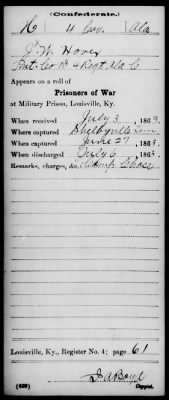 (Confederate.)
H 4 Cav. Ala
J. W. Hover
Pvt. Co. B 4 Regt. Ala C.
Appears on a roll of
Prisoners of War
at Military Prison, Louisville, Ky.
When received July 3, 1863.
Where captured Shelbyville Tenn
When captured June 27, 1863.
When discharged July 6, 1863.
Remarks, charges, &c. Camp Chase
Louisville, Ky., Register No. 4; page 61
J A Boyd
Copyist.